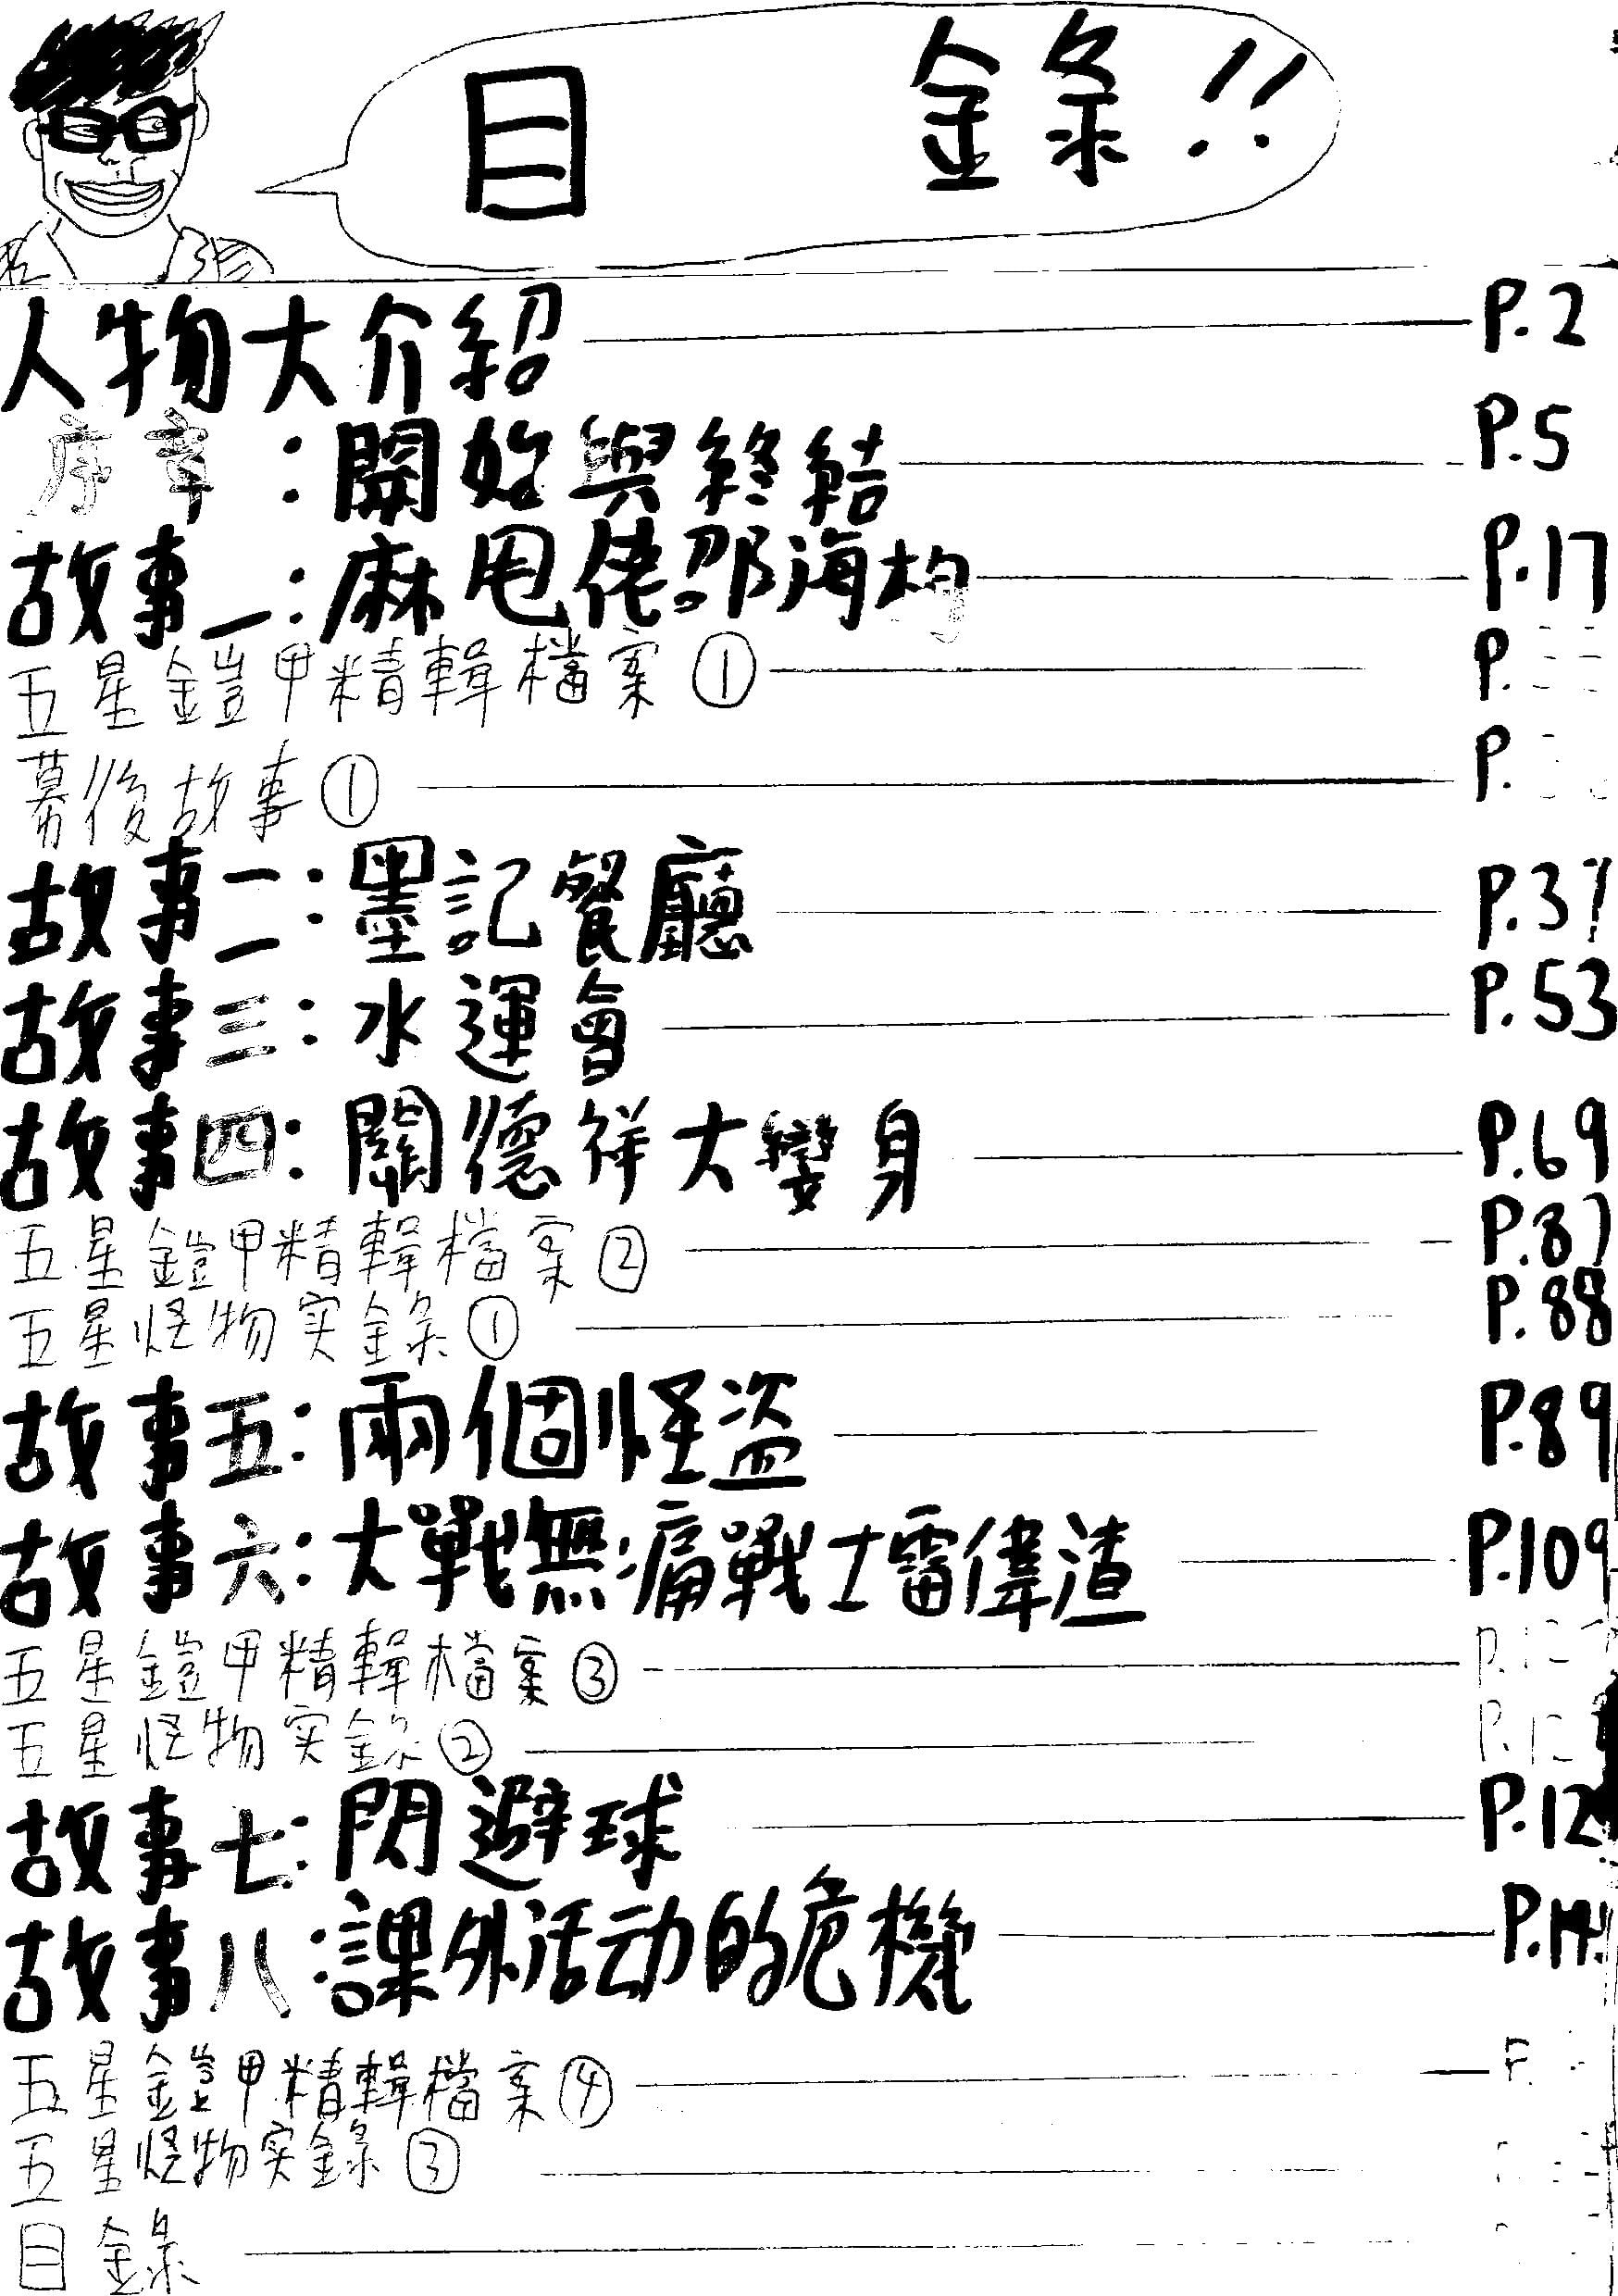 目 錄!!
人物大介紹 P.2
序章:開始與終結 P.5
故事一:麻甩佬邵海构 P.17
五星鎧甲精輯檔案① P.
幕後故事① P.
故事二:墨記餐廳 P.37
故事三:水運會 P.53
故事四:關德祥大變身 P.69
五星鎧甲精輯檔案② P.87
五星怪物实錄① P.88
故事五:兩個怪盜 P.89
故事六:大戰無痛戰士雷偉渣 P.109
五星鎧甲精輯檔案③
五星怪物实錄②
故事七:閃避球 P.12
故事八:課外活动的危機
五星鎧甲精輯檔案④
五星怪物实錄③
目錄